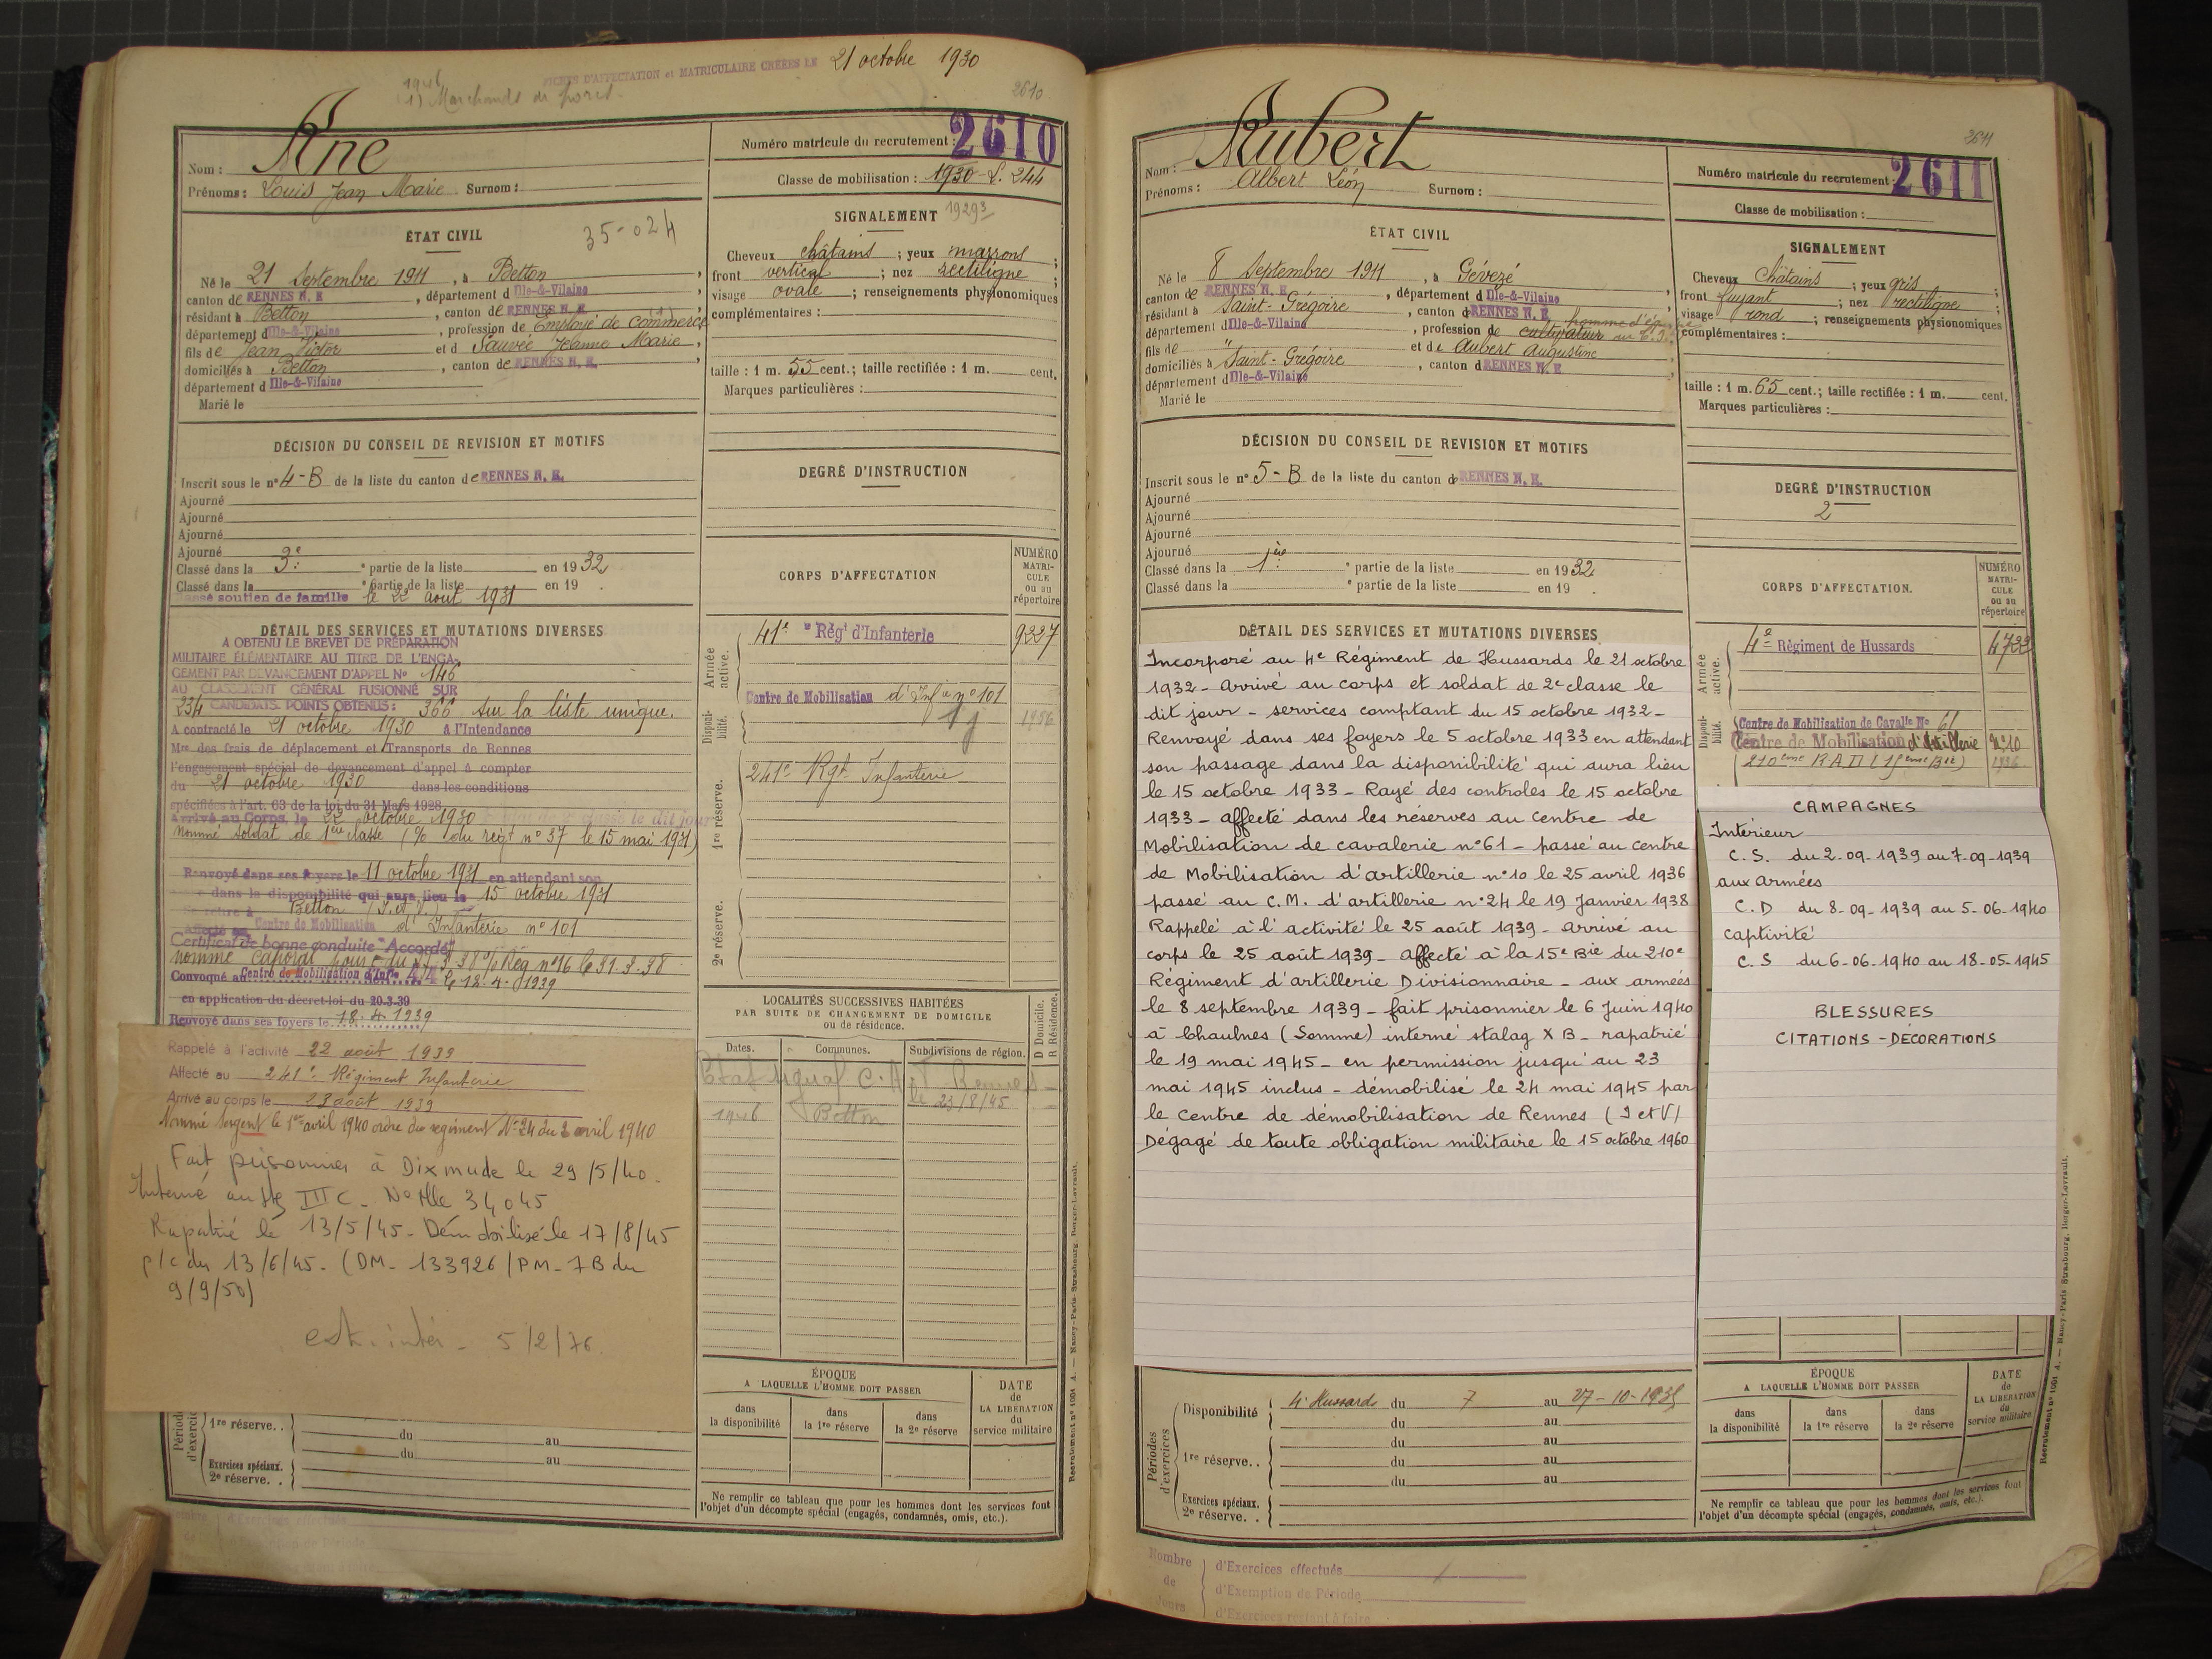 FICHES D'AFFECTATION et MATRICULAIRE CRÉÉES LE 21 octobre 1930
1946
(1) Marchands de porcs.
2610
Nom : Ané
Prénoms : Louis Jean Marie Surnom :
Numéro matricule du recrutement : 2610
Classe de mobilisation : 1930
ÉTAT CIVIL
35-024
Né le 21 Septembre 1911, à Betton,
canton de RENNES N. E, département d Ille-&-Vilaine,
résidant à Betton, canton de RENNES N. E.,
département d Ille-&-Vilaine, profession de Employé de commerce
fils de Jean Victor et d Sauvée Jeanne Marie,
domiciliés à Betton, canton de RENNES N. E.,
département d Ille-&-Vilaine
Marié le
SIGNALEMENT
Cheveux châtains ; yeux marrons ;
front vertical ; nez rectiligne ;
visage ovale ; renseignements physionomiques
complémentaires :
taille : 1 m. 55 cent.; taille rectifiée : 1 m. cent.
Marques particulières :
DÉCISION DU CONSEIL DE REVISION ET MOTIFS
Inscrit sous le n° 4-B de la liste du canton de RENNES N. E.
Ajourné
Ajourné
Ajourné
Ajourné
Classé dans la 3e ° partie de la liste en 1932
Classé dans la ° partie de la liste en 19
Classé soutien de famille le 22 août 1931
DEGRÉ D'INSTRUCTION
DÉTAIL DES SERVICES ET MUTATIONS DIVERSES
A OBTENU LE BREVET DE PRÉPARATION
MILITAIRE ÉLÉMENTAIRE AU TITRE DE L'ENGA-
GEMENT PAR DEVANCEMENT D'APPEL N° 146
AU CLASSEMENT GÉNÉRAL FUSIONNÉ SUR
234 CANDIDATS. POINTS OBTENUS : 366 sur la liste unique.
A contracté le 21 octobre 1930 à l'Intendance
Mre des frais de déplacement et Transports de Rennes
l'engagement spécial de devancement d'appel à compter
du 21 octobre 1930 dans les conditions
spécifiées à l'art. 63 de la loi du 31 Mars 1928
Arrivé au Corps, le 22 octobre 1930 le dit jour
nommé soldat de 1ère classe (% du régt n° 37 le 15 mai 1931)
Renvoyé dans ses foyers le 11 octobre 1931 en attendant son
dans la disponibilité qui aura lieu le 15 octobre 1931
Se retire à Betton (I. et V.)
Affecté au Centre de Mobilisation d'Infanterie n° 101
Certificat de bonne conduite "Accordé"
nommé caporal
Convoqué au Centre de Mobilisation d'Infie 44 le 18.4.1939
en application du décret-loi du 20.3.39
Renvoyé dans ses foyers le 18.4.1939
Rappelé à l'activité 22 août 1939
Affecté au 241e Régiment Infanterie
Arrivé au corps le 23 août 1939
Nommé Sergent le 1er avril 1940 ordre du régiment N° 24 du 2 avril 1940
Fait prisonnier à Dixmude le 29/5/40.
Interné au Stg III C - N° Mle 34045
Rapatrié le 13/5/45 - Démobilisé le 17/8/45
p/c du 13/6/45 - (DM - 133926/PM-7B du
9/9/50)
5/2/76
CORPS D'AFFECTATION
NUMÉRO MATRI-CULE ou au répertoire
Armée active.
41e Régt d'Infanterie 9227
Disponi-bilité.
Centre de Mobilisation d'Infie n° 101
1re réserve.
241e Rgt Infanterie
2e réserve.
LOCALITÉS SUCCESSIVES HABITÉES
PAR SUITE DE CHANGEMENT DE DOMICILE
ou de résidence.
D Domicile.
R Résidence.
Dates. Communes. Subdivisions de région.
le 23/8/45
1946 Betton
Périodes d'exercices
1re réserve. . du au
du au
Exercices spéciaux.
2e réserve. .
ÉPOQUE
A LAQUELLE L'HOMME DOIT PASSER
dans la disponibilité
dans la 1re réserve
dans la 2e réserve
DATE de LA LIBÉRATION du service militaire
Ne remplir ce tableau que pour les hommes dont les services font
l'objet d'un décompte spécial (engagés, condamnés, omis, etc.).
Recrutement n° 1004 A. — Nancy-Paris-Strasbourg, Berger-Levrault.
2611
Nom : Aubert
Prénoms : Albert Léon Surnom :
Numéro matricule du recrutement : 2611
Classe de mobilisation :
ÉTAT CIVIL
Né le 8 Septembre 1911, à Gévezé
canton de RENNES N. E, département d Ille-&-Vilaine
résidant à Saint-Grégoire, canton d RENNES N. E
département d Ille-&-Vilaine, profession de cultivateur
fils de " et de Aubert Augustine
domiciliés à Saint-Grégoire, canton d RENNES N. E,
département d Ille-&-Vilaine
Marié le
SIGNALEMENT
Cheveux Châtains ; yeux gris ;
front fuyant ; nez rectiligne ;
visage rond ; renseignements physionomiques
complémentaires :
taille : 1 m. 65 cent.; taille rectifiée : 1 m. cent.
Marques particulières :
DÉCISION DU CONSEIL DE REVISION ET MOTIFS
Inscrit sous le n° 5-B de la liste du canton de RENNES N. E.
Ajourné
Ajourné
Ajourné
Ajourné
Classé dans la 1ère ° partie de la liste en 1932
Classé dans la ° partie de la liste en 19
DEGRÉ D'INSTRUCTION
2
DÉTAIL DES SERVICES ET MUTATIONS DIVERSES
Incorporé au 4e Régiment de Hussards le 21 octobre
1932 - Arrivé au corps et soldat de 2e classe le
dit jour - services comptant du 15 octobre 1932 -
Renvoyé dans ses foyers le 5 octobre 1933 en attendant
son passage dans la disponibilité qui aura lieu
le 15 octobre 1933 - Rayé des controles le 15 octobre
1933 - affecté dans les réserves au centre de
Mobilisation de cavalerie n° 61 - passé au centre
de Mobilisation d'artillerie n° 10 le 25 avril 1936
passé au C.M. d'artillerie n° 24 le 19 Janvier 1938
Rappelé à l'activité le 25 août 1939 - arrivé au
corps le 25 août 1939 - Affecté à la 15e Bie du 210e
Régiment d'artillerie Divisionnaire - aux armées
le 8 septembre 1939 - fait prisonnier le 6 Juin 1940
à Chaulnes (Somme) interné stalag X B - rapatrié
le 19 mai 1945 - en permission jusqu'au 23
mai 1945 inclus - démobilisé le 24 mai 1945 par
le Centre de démobilisation de Rennes (I et V)
Dégagé de toute obligation militaire le 15 octobre 1960
CORPS D'AFFECTATION.
NUMÉRO MATRI-CULE ou au répertoire
Armée active.
4e Régiment de Hussards 4733
Disponi-bilité.
Centre de Mobilisation de Cavalle N° 61
Centre de Mobilisation d'Artillerie N° 10
210ème R.A.D (15ème Bie) 1936
CAMPAGNES
Intérieur
C.S. du 2-09-1939 au 7-09-1939
aux armées
C.D du 8-09-1939 au 5-06-1940
captivité
C.S du 6-06-1940 au 18-05-1945
BLESSURES
CITATIONS - DÉCORATIONS
Périodes d'exercices
Disponibilité 4e Hussards du 7 au 27-10-1935
du au
1re réserve. . du au
du au
du au
Exercices spéciaux.
2e réserve. .
ÉPOQUE
A LAQUELLE L'HOMME DOIT PASSER
dans la disponibilité
dans la 1re réserve
dans la 2e réserve
DATE de LA LIBÉRATION du service militaire
Ne remplir ce tableau que pour les hommes dont les services font
l'objet d'un décompte spécial (engagés, condamnés, omis, etc.).
Recrutement n° 1004 A. — Nancy-Paris-Strasbourg, Berger-Levrault.
Nombre de Jours
d'Exercices effectués
d'Exemption de Période
d'Exercices restant à faire